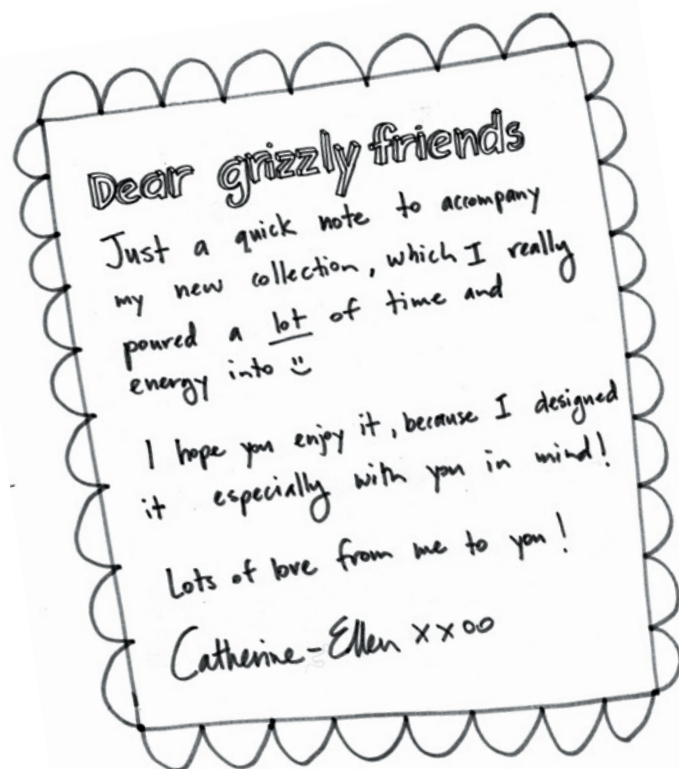 Dear grizzly friends
Just a quick note to accompany
my new collection, which I really
poured a lot of time and
energy into :)
I hope you enjoy it, because I designed
it especially with you in mind!
Lots of love from me to you!
Catherine-Ellen xxoo